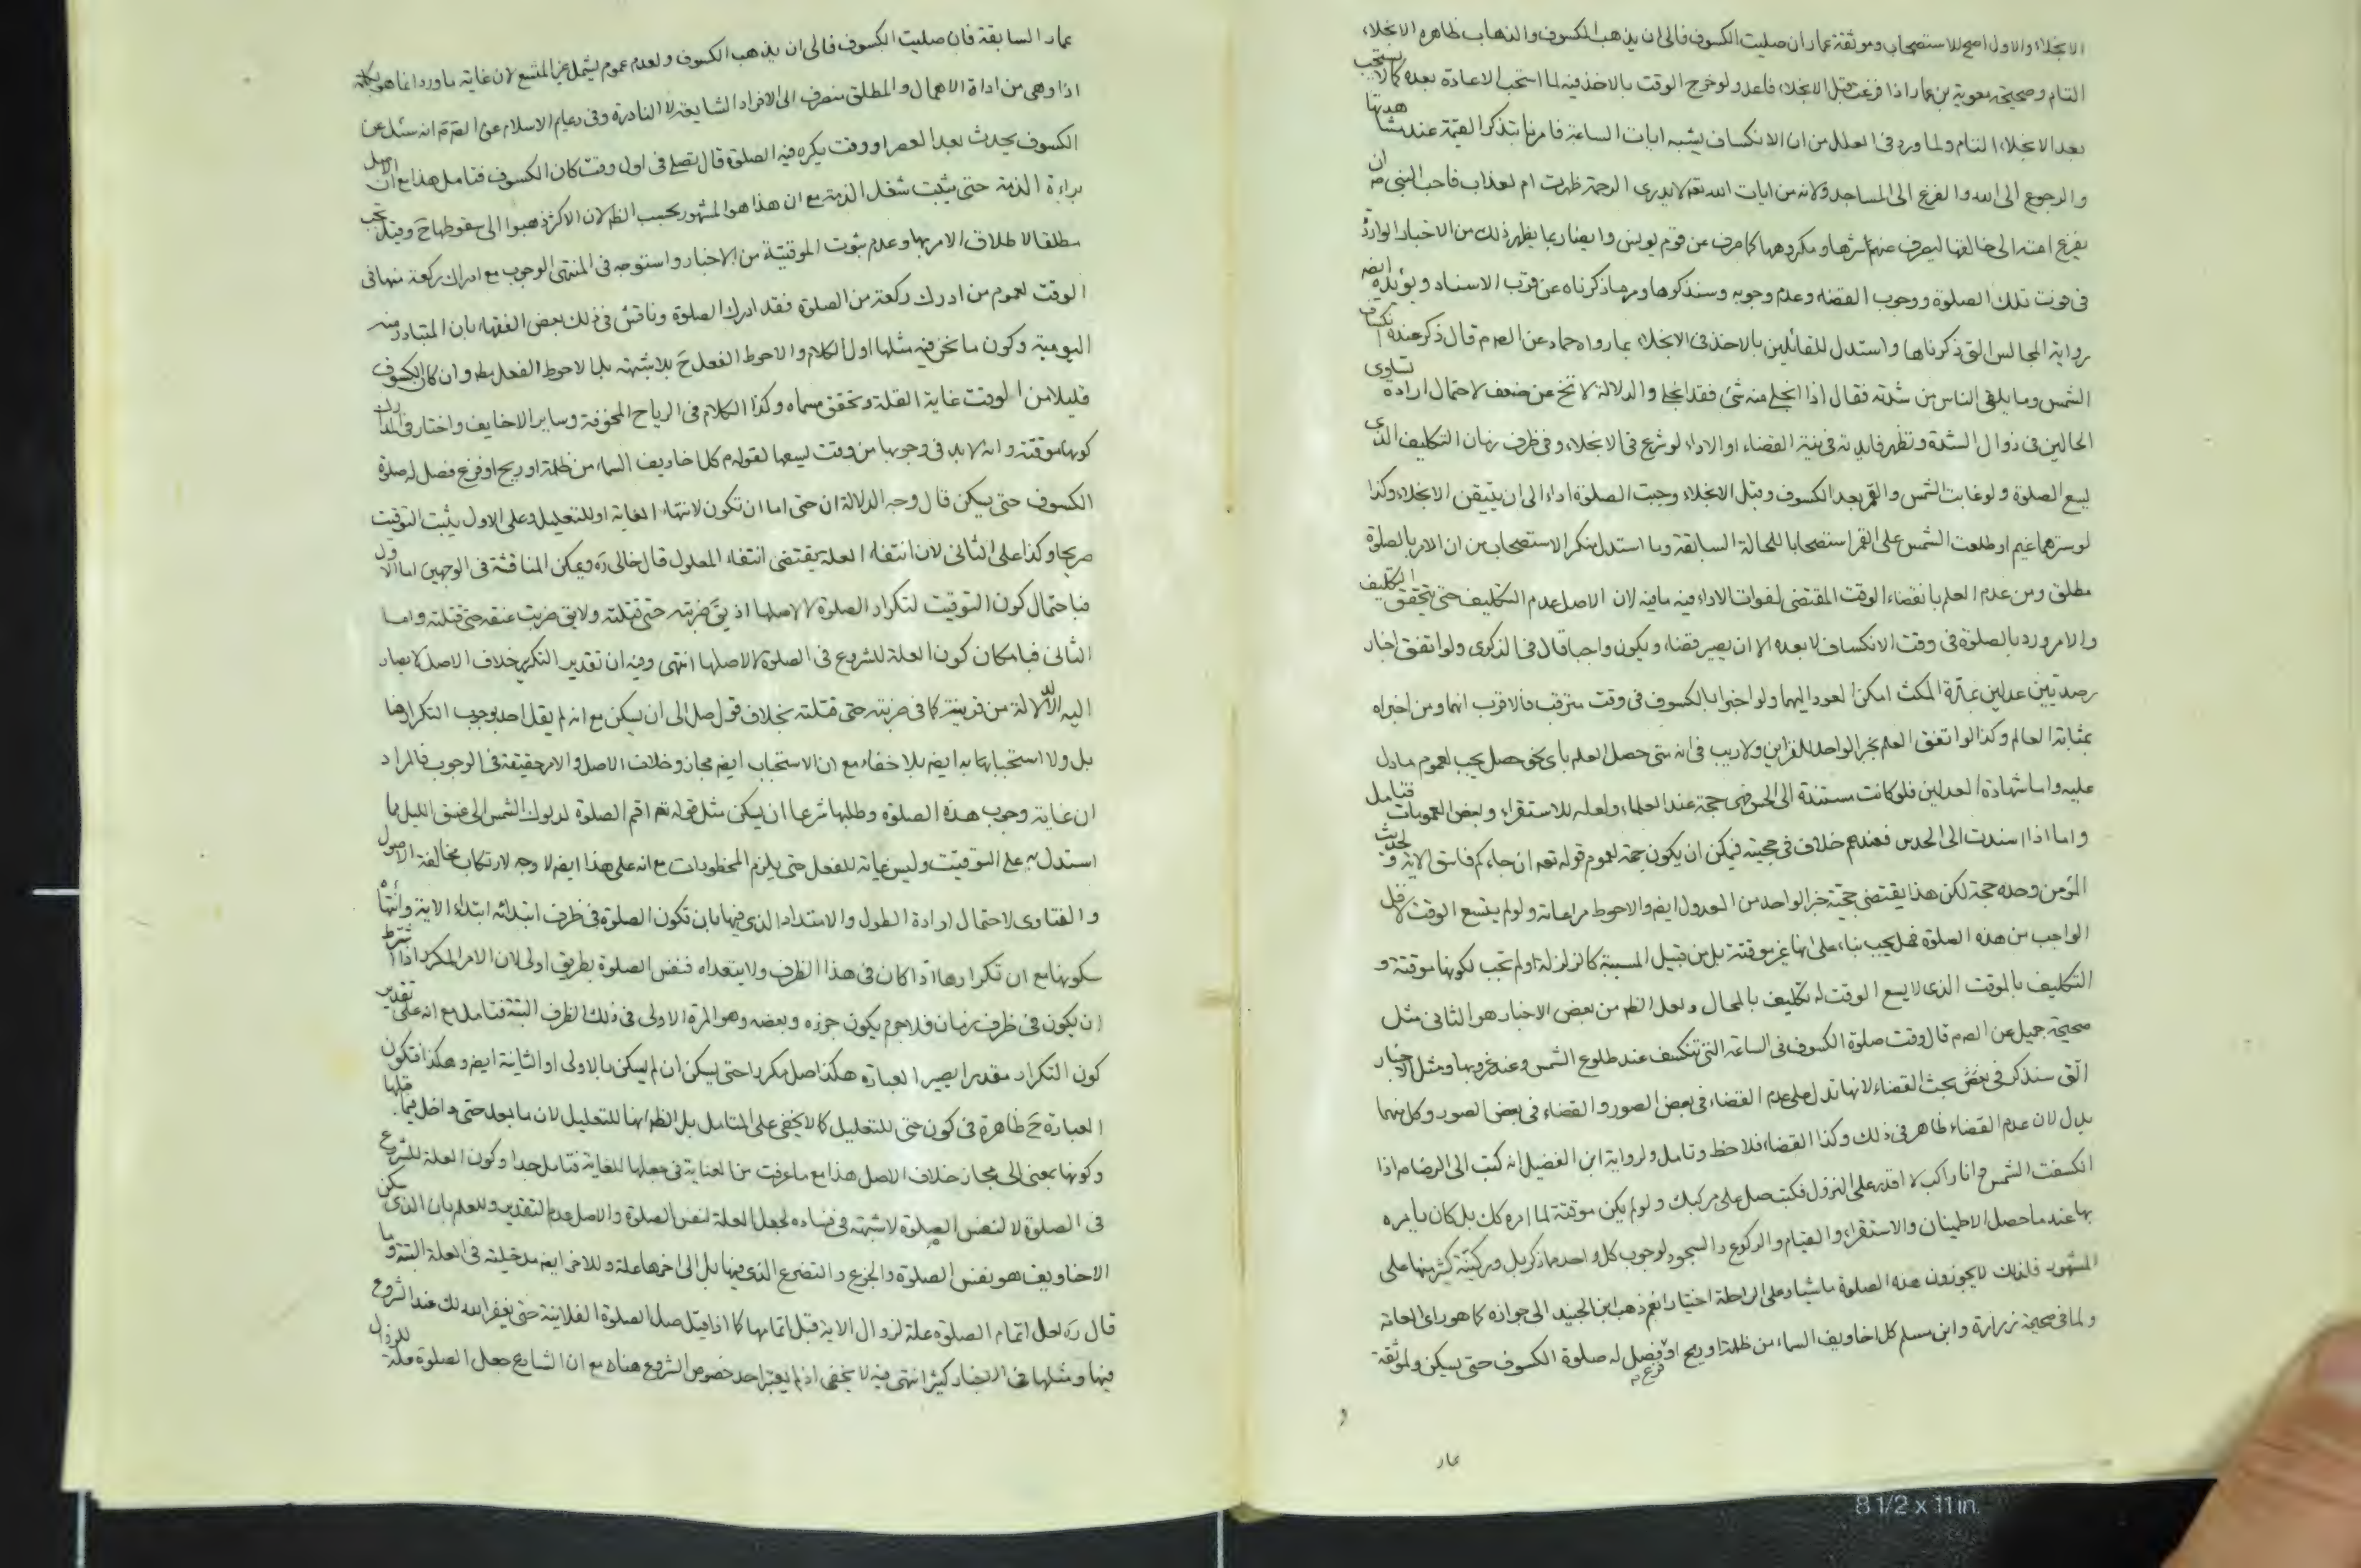 الانجلاء والاول اصح للاستصحاب وموثقة عمار ان صليت الكسوف فالى ان يذهب الكسوف والذهاب ظاهره الانجلاء
التام وصحيحة معوية بن عمار اذا فرغت قبل الانجلاء فاعد ولو خرج الوقت بالاخذ فيه لما استحب الاعادة بعده كما لا يستحب
بعد الانجلاء التام ولما ورد في العلل من ان الانكساف يشبه ايات الساعة فامرنا بتذكر القيمة عند مشاهدتها
والرجوع الى الله والفزع الى المساجد ولانه من ايات الله تعه لا يدرى الرحمة ظهرت ام لعذاب فاحب النبي ص ان
يفزع امته الى خالقها ليصرف عنهم شرها ومكروهها كما صرف عن قوم يونس وايضا ربما يظهر ذلك من الاخبار الواردة
في فوت تلك الصلوة ووجوب القضاء وعدم وجوبه وسنذكرها ومر ما ذكرناه عن قرب الاسناد ويؤيده ايضه
رواية المجالس التي ذكرناها واستدل للقائلين بالاخذ في الانجلاء بما رواه حماد عن الص م قال ذكر عنده انكساف
الشمس وما يلقى الناس من شدته فقال اذا انجلى منه شئ فقد انجلى والدلالة لا تخ عن ضعف لاحتمال ارادة تساوى
الحالين في زوال الشدة وتظهر فايدته في نية القضاء او الاداء لو شرع في الانجلاء وفي ظرف زمان التكليف الذى
ليسع الصلوة ولو غابت الشمس والقمر بعد الكسوف وقبل الانجلاء وجبت الصلوة اداء الى ان يتيقن الانجلاء وكذا
لو سترهما غيم او طلعت الشمس على القمر استصحابا للحالة السابقة وما استدل منكر الاستصحاب من ان الامر بالصلوة
مطلق ومن عدم العلم بانقضاء الوقت المقتضى لفوات الاداء فيه ما فيه لان الاصل عدم التكليف حتى يتحقق التكليف
والامر ورد بالصلوة في وقت الانكساف لا بعده الا ان يصير قضاء ويكون واجبا قال في الذكرى ولو اتفق اخبار
رصديين عدلين بمدة المكث امكن العود اليهما ولو اخبرا بالكسوف في وقت مترقب فالاقرب انهما ومن اخبراه
بمثابة العالم وكذا لو اتفق العلم بخبر الواحد للقراين ولا ريب في انه متى حصل العلم باى نحو حصل يجب لعموم ما دل
عليه واما شهادة العدلين فلو كانت مستندة الى الحس فهى حجة عند العلماء ولعله للاستقراء وبعض العمومات فتامل
واما اذا اسندت الى الحدس فعندهم خلاف في حجيته فيمكن ان يكون حجة لعموم قوله تعه ان جاءكم فاسق الاية وحديث
المؤمن وحده حجة لكن هذا يقتضى حجية خبر الواحد من العدول ايضه والاحوط مراعاته ولو لم يتسع الوقت لاقل
الواجب من هذه الصلوة فهل يجب بناء على انها غير موقتة بل من قبيل المسببة كالزلزلة او لم تجب لكونها موقتة و
التكليف بالموقت الذى لا يسع الوقت له تكليف بالمحال ولعل الظه من بعض الاخبار هو الثانى مثل
صحيحة جميل عن الص م قال وقت صلوة الكسوف في الساعة التي تنكسف عند طلوع الشمس وعند غروبها ومثل الاخبار
التي سنذكر في بعض بحث القضاء لانها تدل على عدم القضاء في بعض الصور والقضاء في بعض الصور وكل منهما
يدل لان عدم القضاء ظاهر في ذلك وكذا القضاء فلاحظ وتامل ولرواية ابن الفضيل انه كتب الى الرضا م اذا
انكسفت الشمس وانا راكب لا اقدر على النزول فكتب صل على مركبك ولو لم يكن موقتة لما امره كك بل كان يامره
بها عند ما حصل الاطمينان والاستقراء والقيام والركوع والسجود لوجوب كل واحد مما ذكر بل وركنية كثير منها على
المشهور فلذلك لا يجوزون هذه الصلوة ماشيا وعلى الراحلة اختيارا نعم ذهب ابن الجنيد الى جوازه كما هو راى العامة
ولما في صحيحة زرارة وابن مسلم كل اخاويف السماء من ظلمة او ريح او فزع فصل له صلوة الكسوف حتى يسكن ولموثقة
عمار
عمار السابقة فان صليت الكسوف فالى ان يذهب الكسوف ولعدم عموم يشمل غير المتسع لان غاية ما ورد انما هو بكلمة
اذا وهى من اداة الاهمال والمطلق منصرف الى الافراد الشايعة لا النادرة وفي دعايم الاسلام عن الص م انه سئل عن
الكسوف يحدث بعد العصر او وقت يكره فيه الصلوة قال يصلى في اول وقت كان الكسوف فتامل هذا مع ان الاصل
براءة الذمة حتى يثبت شغل الذمة مع ان هذا هو المشهور بحسب الظه لان الاكثر ذهبوا الى سقوطها ح وقيل تجب
مطلقا لاطلاق الامر بها وعدم ثبوت الموقتية من الاخبار واستوجه في المنتهى الوجوب مع ادراك ركعة منها في
الوقت لعموم من ادرك ركعة من الصلوة فقد ادرك الصلوة وناقش في ذلك بعض الفقهاء بان المتبادر منه
اليومية وكون ما نحن فيه مثلها اول الكلام والاحوط الفعل ح بلا شبهة بل الاحوط الفعل مطه وان كان الكسوف
قليلا من الوقت غاية القلة وتحقق مسماه وكذا الكلام في الرياح المخوفة وساير الاخاويف واختار في المدارك
كونها موقتة وانه لا بد في وجوبها من وقت ليسعها لقوله م كل اخاويف السماء من ظلمة او ريح او فزع فصل له صلوة
الكسوف حتى يسكن قال وجه الدلالة ان حتى اما ان تكون لانتهاء الغاية او للتعليل وعلى الاول يثبت التوقيت
صريحا وكذا على الثانى لان انتفاء العلة يقتضى انتفاء المعلول قال خالى ره ويمكن المناقشة في الوجهين اما الاول
فباحتمال كون التوقيت لتكرار الصلوة لا لاصلها اذ يق ضربته حتى قتلته ولا يق ضربت عنقه حتى قتلته واما
الثانى فبامكان كون العلة للشروع في الصلوة لا لاصلها انتهى وفيه ان تقدير التكرير خلاف الاصل لا يصار
اليه الا لدلالة من قرينة كما في ضربته حتى قتلته بخلاف قول صل الى ان يسكن مع انه لم يقل احد بوجوب التكرار فيها
بل ولا استحبابها به ايضه بلا خفاء مع ان الاستحباب ايضه مجاز وخلاف الاصل والامر حقيقة في الوجوب فالمراد
ان غاية وجوب هذه الصلوة وطلبها شرعا ان يسكن مثل قوله تعه اقم الصلوة لدلوك الشمس الى غسق الليل بما
استدل به على التوقيت وليس غاية للفعل حتى يلزم المحظورات مع انه على هذا ايضه لا وجه لارتكاب مخالفة الاصول
والفتاوى لاحتمال ارادة الطول والامتداد الذى فيها بان تكون الصلوة في ظرف ابتدائه ابتداء الاية وانتهائه
سكونها مع ان تكرارها اذا كان في هذا الظرف ولا يتعداه فنفس الصلوة بطريق اولى لان الامر المكرر اذا اشترط
ان يكون في ظرف زمان فلا جرم يكون جزءه وبعضه وهو المرة الاولى في ذلك الظرف البتة فتامل مع انه على تقدير
كون التكرار مقدرا يصير العبارة هكذا صل مكررا حتى يسكن ان لم يسكن بالاولى او الثانية ايضه وهكذا فتكون
العبارة ح ظاهرة في كون حتى للتعليل كما لا يخفى على المتامل بل الظه انها للتعليل لان ما بعد حتى داخل فيما قبلها
وكونها بمعنى الى مجاز خلاف الاصل هذا مع ما عرفت من العناية في جعلها للغاية فتامل جدا وكون العلة للشروع
في الصلوة لا لنفس الصلوة لا شبهة في فساده لجعل العلة لنفس الصلوة والاصل عدم التقدير وللعلم بان الذى يسكن
الاخاويف هو نفس الصلوة والجزع والتضرع الذى فيها بل الى اخرها علة وللاخر ايضه مدخلية في العلة البتة وما
قال ره لعل اتمام الصلوة علة لزوال الاية قبل اتمامها كما اذا قيل صل الصلوة الفلانية حتى يغفر الله لك عند الشروع
فيها ومثلها في الاخبار كثير انتهى فيه لا يخفى اذ لم يعتبر احد خصوص الشروع هناه مع ان الشارع جعل الصلوة علة للزوال